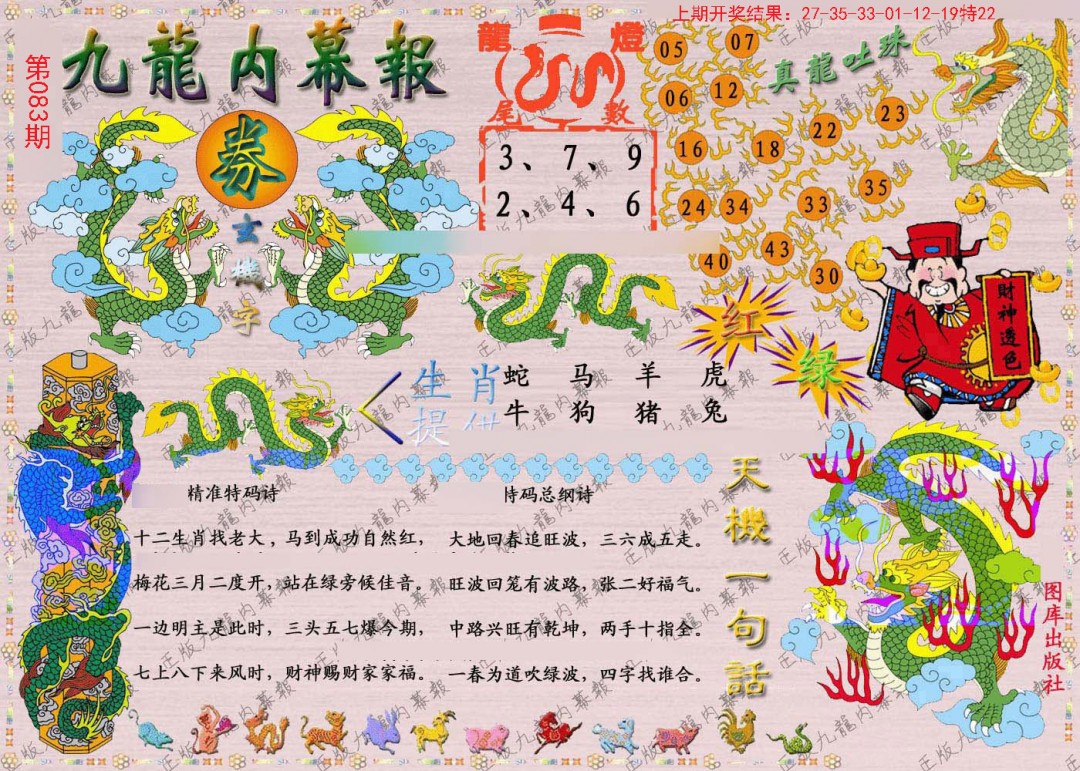 上期开奖结果：27-35-33-01-12-19特22
第083期
九龍内幕報
龍燈
尾數
3、7、9
2、4、6
真龍吐珠
05 07
06 12
16 18 22 23
24 34 33 35
40 43 30
券
玄
機
字
财神透色
红
绿
生肖
提供
蛇 马 羊 虎
牛 狗 猪 兔
精准特码诗
十二生肖找老大，马到成功自然红，
梅花三月二度开，站在绿旁候佳音。
一边明主是此时，三头五七爆今期，
七上八下来风时，财神赐财家家福。
特码总纲诗
大地回春追旺波，三六成五走。
旺波回笼有波路，张二好福气。
中路兴旺有乾坤，两手十指全。
一春为道吹绿波，四字找谁合。
天機一句話
图库出版社
正版九龍内幕報